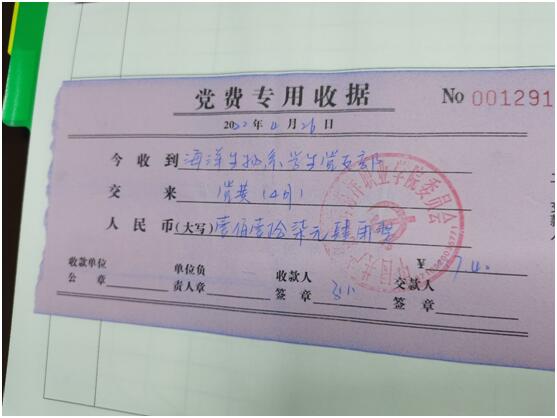 党费专用收据 No 001291
2022年4月26日
今收到 海洋生物系学生党支部
交来 党费(4月)
人民币(大写) 壹佰壹拾柒元肆角
¥
收款单位 单位负 收款人 交款人
公章 责人章 签章 签章
洋职业学院委员会
中国共